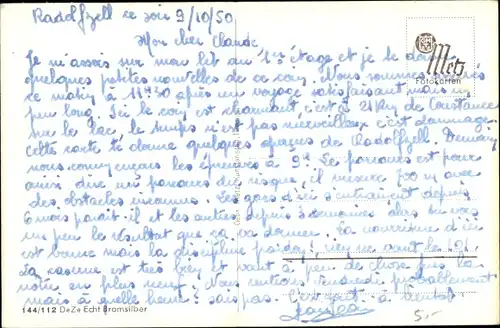 Radolfzell ce soir 9/10/50
Mon cher Claude,
Je m'assois sur mon lit au 1er étage et je te donne
quelques petites nouvelles de ce coin. Nous sommes arrivés
ce matin à 11h30 après un voyage satisfaisant mais un
peu long. Ici le coin est charmant c'est à 21km de Constance
sur le lac, le temps n'est pas merveilleux c'est dommage.
Cette carte te donne quelques aperçus de Radolfzell. Demain
nous commençons les épreuves à 9h. Le parcours est pour
ainsi dire un parcours du risque, il mesure 700 m avec
des obstacles inconnus. Les gars d'ici s'entrainent depuis
6 mois parait-il et les autres depuis 3 semaines alors tu vois
un peu le résultat que ça va donner. La nourriture d'ici
est bonne mais la discipline
La caserne est très bien et vaut à peu de chose près la
notre en plus neuf. Nous rentrons vendredi probablement
mais à quelle heure? sais pas. C'est tout à bientôt
Metz
Fotokarten
144/112 DeZe Echt Bromsilber
5,-